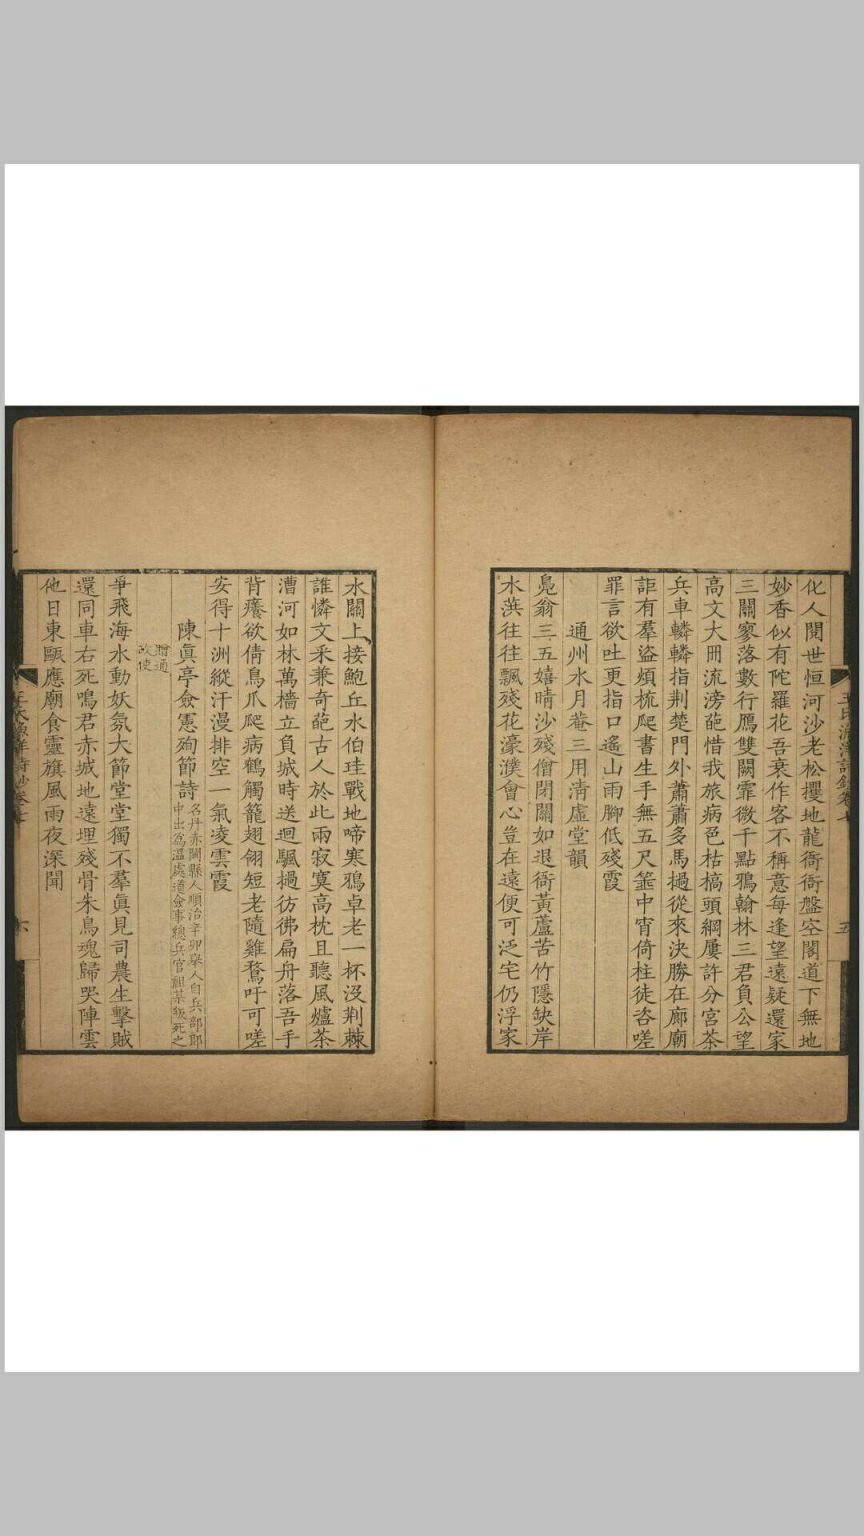 化人閱世恒河沙老松攫地龍衙衙盤空閣道下無地
妙香似有陀羅花吾衰作客不稱意每逢望遠疑還家
三關寥落數行鴈雙闕霏微千點鴉翰林三君負公望
高文大冊流滂葩惜我旅病色枯槁頭綱屢許分宮茶
兵車轔轔指荆楚門外蕭蕭多馬撾從來決勝在廊廟
詎有羣盜煩梳爬書生手無五尺箠中宵倚柱徒咨嗟
罪言欲吐更指口遙山雨腳低殘霞
通州水月菴三用清虛堂韻
鳧翁三五嬉晴沙殘僧閉關如退衙黃蘆苦竹隱缺岸
水葓往往飄殘花濠濮會心豈在遠便可泛宅仍浮家
王氏漁洋詩鈔卷七
五
水關上接鮑丘水伯珪戰地啼寒鴉卓老一杯沒荆棘
誰憐文采兼奇葩古人於此兩寂寞高枕且聽風爐茶
漕河如林萬檣立負城時送迴颿撾彷彿扁舟落吾手
背癢欲倩鳥爪爬病鶴觸籠翅翎短老隨雞鶩吁可嗟
安得十洲縱汗漫排空一氣凌雲霞
陳眞亭僉憲殉節詩名丹赤閩縣人順治辛卯舉人自兵部郎
中出爲溫處道僉事總兵官祖某叛死之
贈通
政使
爭飛海水動妖氛大節堂堂獨不羣眞見司農生擊賊
還同車右死鳴君赤城地遠埋殘骨朱鳥魂歸哭陣雲
他日東甌應廟食靈旗風雨夜深聞
王氏漁洋詩鈔卷七
六